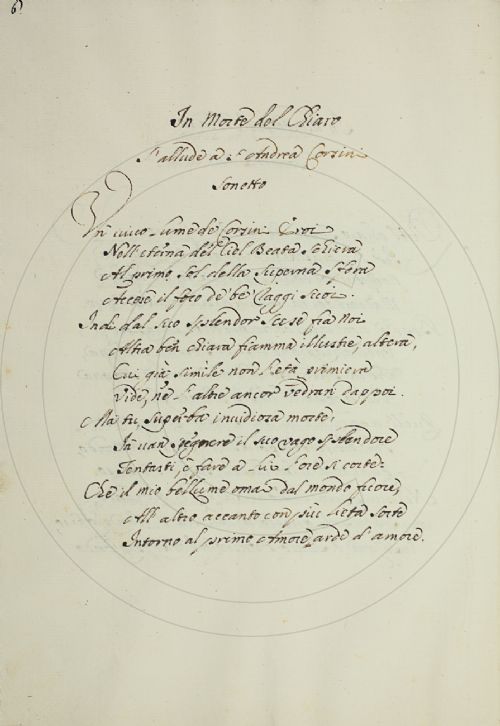 6
In Morte del Chiaro
S'allude a S. Andrea Corsini
Sonetto
Un vivo lume de' Corsini Eroi
Nell' eterna del Ciel Beata schiera
Al primo Sol della superna sfera
Accese il foco de' bei raggi suoi.
Indi dal suo splendor scese fra noi
Altra ben chiara fiamma illustre, altera,
Cui già simile non l'età primiera
Vide, nè l'altre ancor vedran dappoi.
Ma tu, superba invidiosa morte,
In van spegnere il suo vago splendore
Tentasti, e fare a lui l'ore sì corte:
Chè il mio bel lume omai dal mondo fuore,
All' altro accanto con più lieta sorte
Intorno al primo Amore arde d'amore.